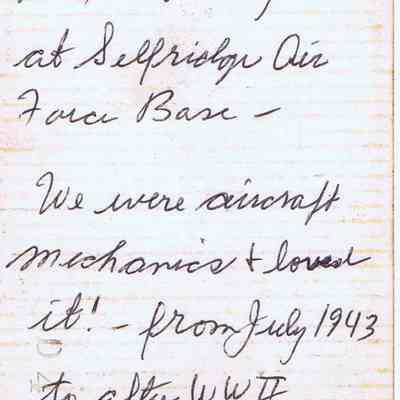 at Selfridge Air
Force Base -
We were aircraft
mechanics + loved
it! - from July 1943
to after WW II